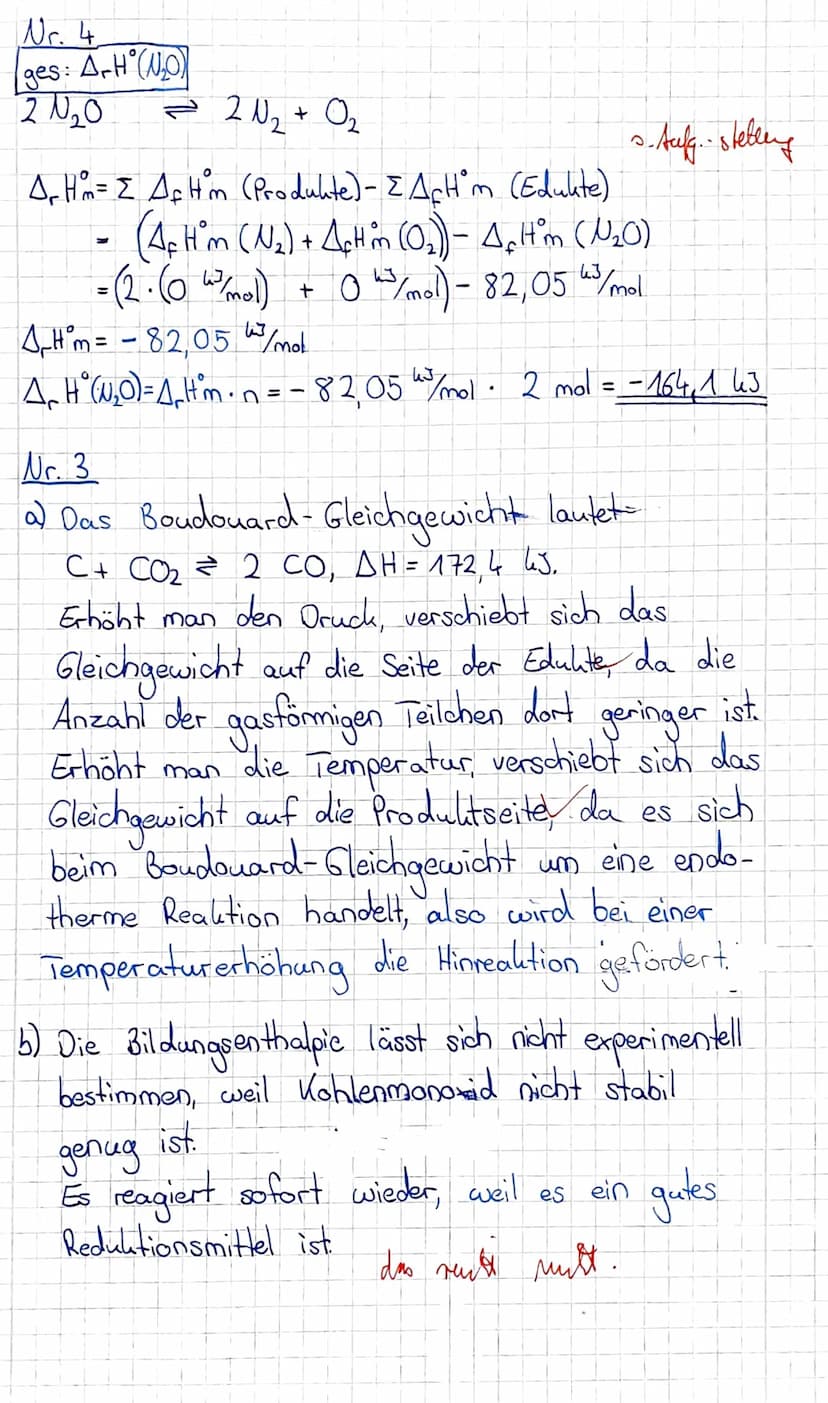 Nr. 4
ges: ΔrH°(N₂O)
2 N₂O ⇌ 2 N₂ + O₂
s. Aufg.-stellung
ΔrH°m = Σ ΔfH°m (Produkte) - Σ ΔfH°m (Edukte)
= (ΔfH°m (N₂) + ΔfH°m (O₂)) - ΔfH°m (N₂O)
= (2·(0 kJ/mol) + 0 kJ/mol) - 82,05 kJ/mol
ΔrH°m = - 82,05 kJ/mol
ΔrH°(N₂O) = ΔrH°m · n = - 82,05 kJ/mol · 2 mol = -164,1 kJ
Nr. 3
a) Das Boudouard-Gleichgewicht lautet:
C + CO₂ ⇌ 2 CO, ΔH = 172,4 kJ.
Erhöht man den Druck, verschiebt sich das
Gleichgewicht auf die Seite der Edukte, da die
Anzahl der gasförmigen Teilchen dort geringer ist.
Erhöht man die Temperatur, verschiebt sich das
Gleichgewicht auf die Produktseite, da es sich
beim Boudouard-Gleichgewicht um eine endo-
therme Reaktion handelt, also wird bei einer
Temperaturerhöhung die Hinreaktion gefördert.
b) Die Bildungsenthalpie lässt sich nicht experimentell
bestimmen, weil Kohlenmonoxid nicht stabil
genug ist.
Es reagiert sofort wieder, weil es ein gutes
Reduktionsmittel ist.
das